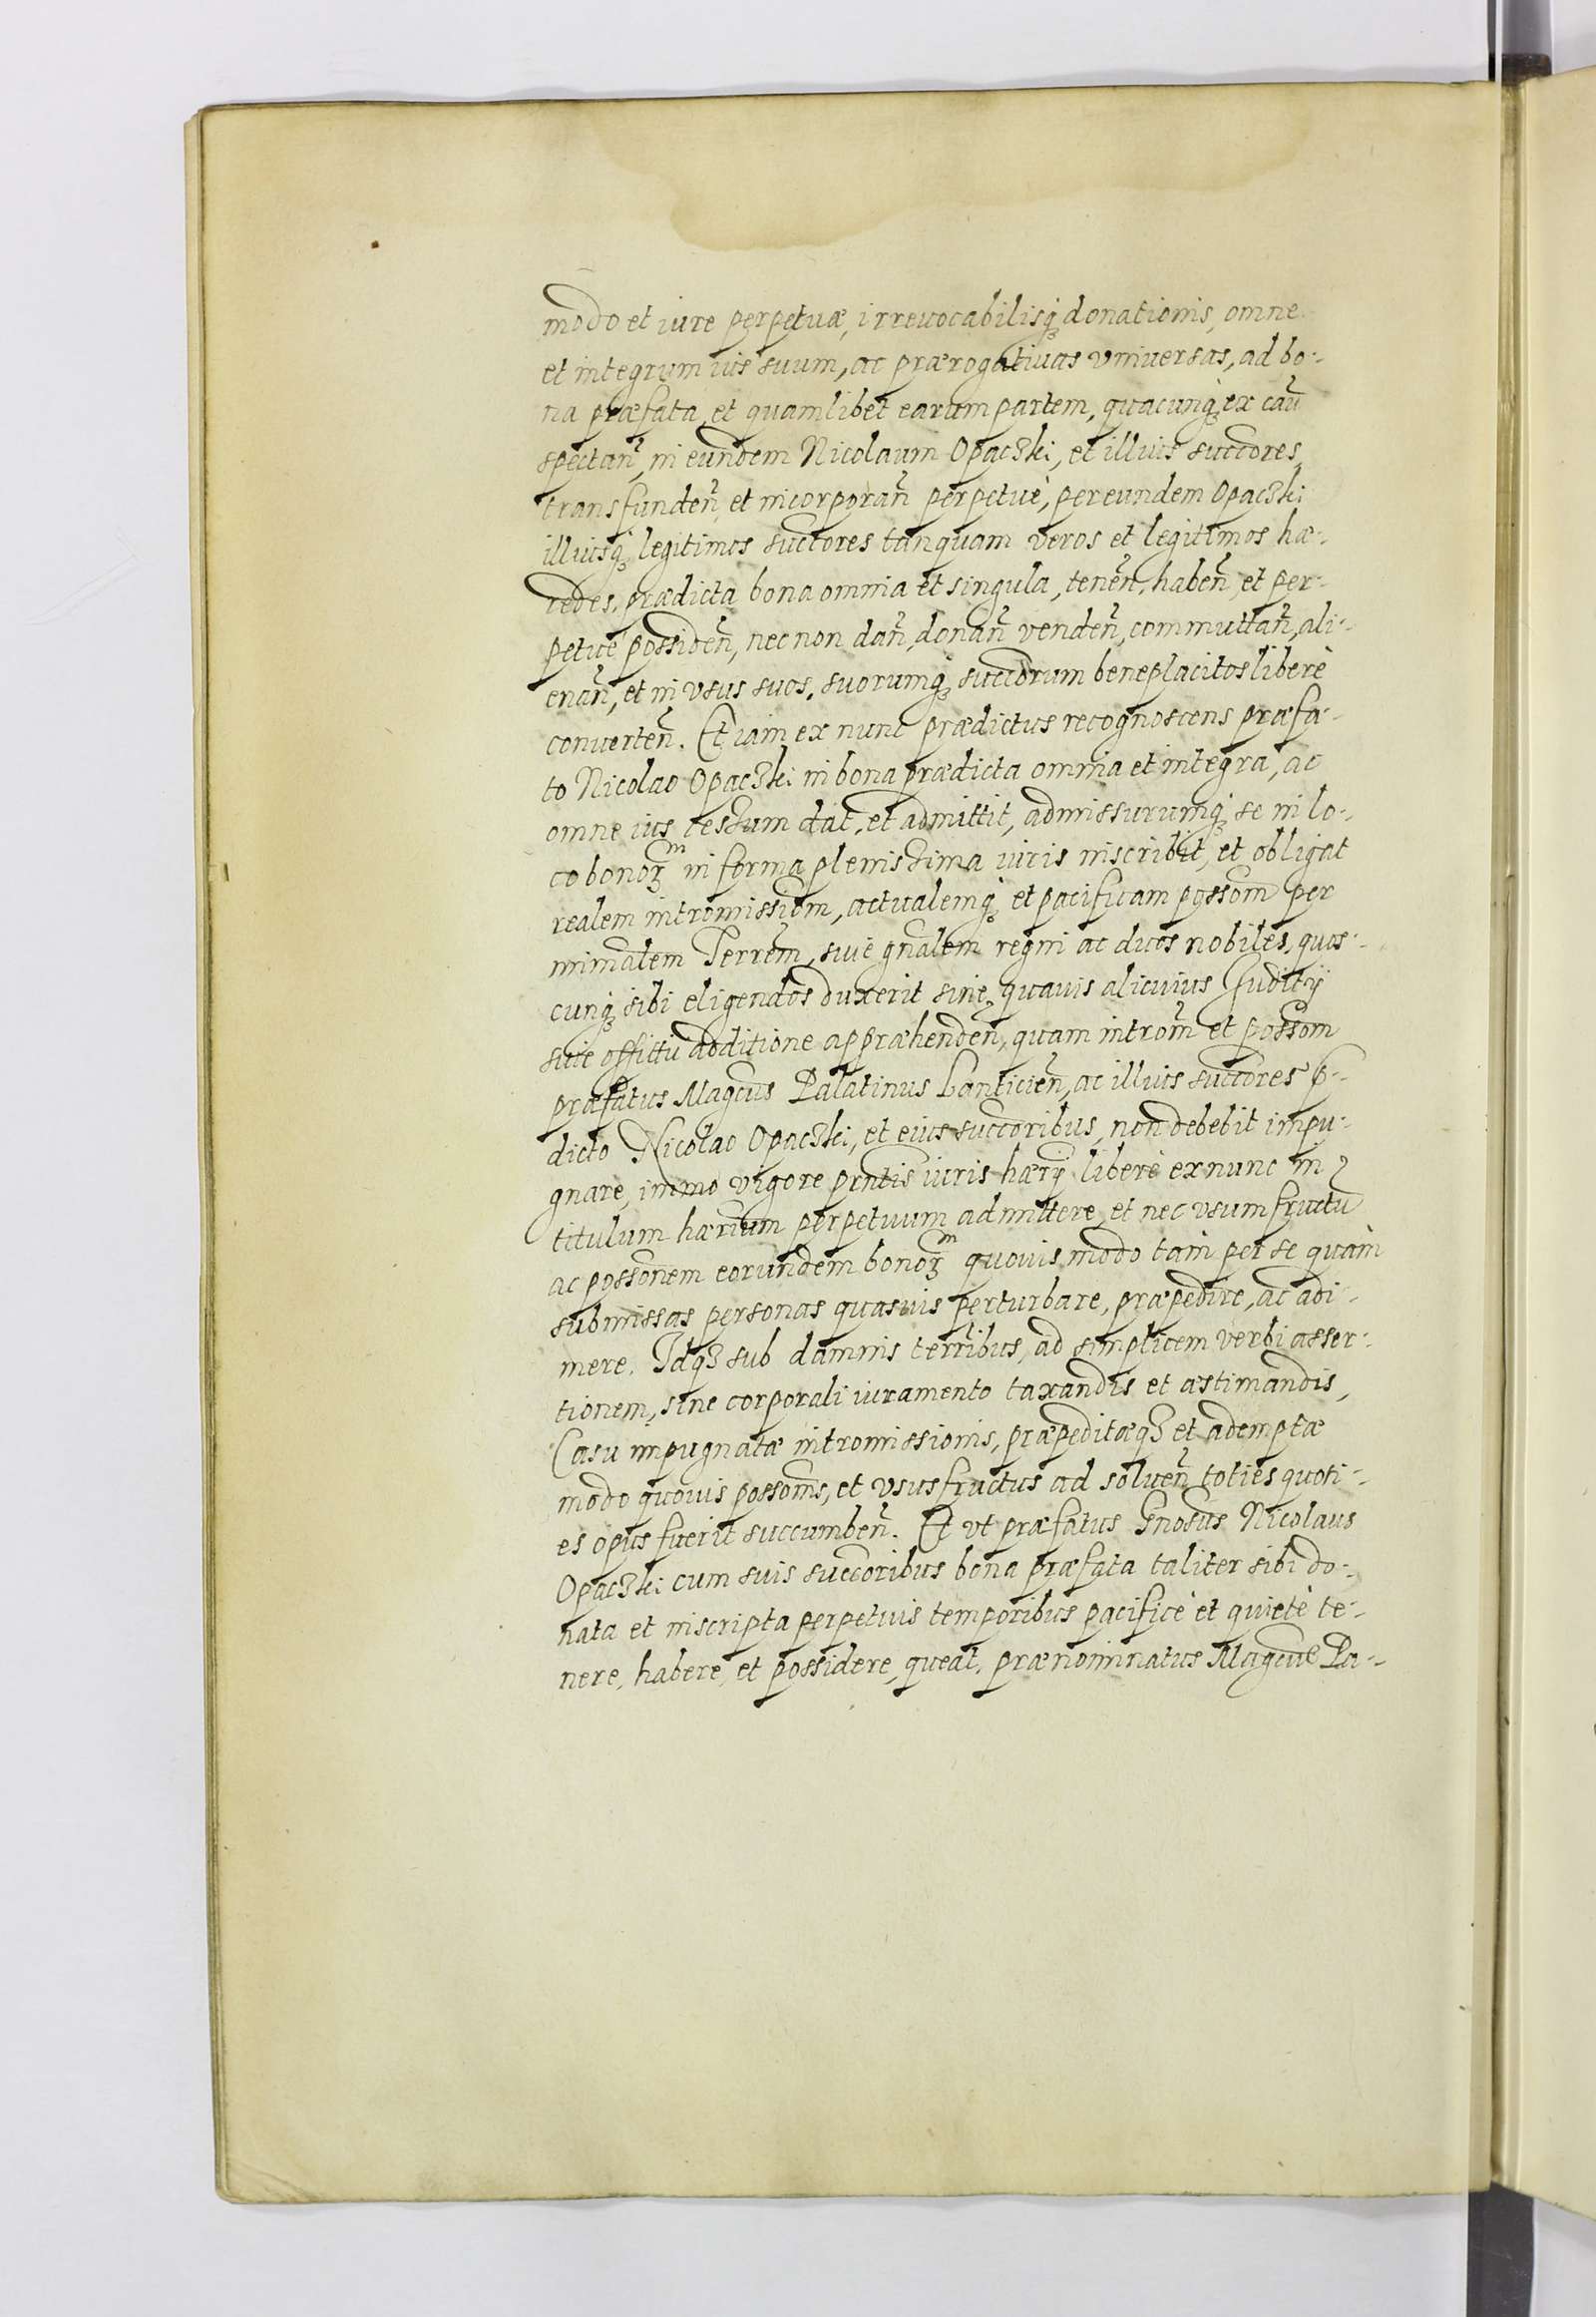 modo et iure perpetuæ, irreuocabilisq; donationis, omne
et integrum ius suum, ac prærogatiuas vniuersas, ad bo-
na præfata, et quamlibet earum partem, quacunq; ex cau͂
spectan͂, in eundem Nicolaum Opaczki, et illius succores,
transfunden͂, et incorporan͂ perpetuè, per eundem Opaczki
illiusq; legitimos succores tanquam veros et legitimos hæ-
redes, prædicta bona omnia et singula, tenen͂, haben͂, et per-
petue possiden͂, nec non dan͂, donan͂ venden͂, commuttan͂, ali-
enan͂, et in vsus suos, suorumq; succorum beneplacitos liberè
conuerten͂. Et iam ex nunc prædictus recognoscens præfa-
to Nicolao Opaczki in bona prædicta omnia et integra, ac
omne ius ipsorum dat, et admittit, admissurumq; se in lo-
co bonorum in forma plenissima iuris inscribit, et obligat
realem intromissiom, actualemq; et pacificam possom per
ministralem Terrem, siue gnalem regni ac duos nobiles, quos-
cunq; sibi eligendos duxerit sine quauis alicuius Juditij
siue offitij additione appræhenden͂, quam introm͂ et possom
præfatus Magcus Palatinus Lanticien͂, ac illius succores p-
dicto Nicolao Opaczki, et eius succoribus, non debebit impu-
gnare, immo vigore prntis iuris hærij liberè ex nunc in
titulum hærium perpetuum admittere, et nec vsumfructu͂
ac possonem eorundem bonorum quouis modo tam per se quàm
submissas personas quasuis perturbare, præpedire, ac adi-
mere. Idq; sub damnis terribus, ad simplicem verbi asser-
tionem, sine corporali iuramento taxandis et æstimandis,
Casu impugnatæ intromissionis, præpeditæq; et ademptæ
modo quouis possonis, et vsusfructus ad soluen͂ toties quoti-
es opus fuerit succumben͂. Et vt præfatus Gnosus Nicolaus
Opaczki cum suis succoribus bona præfata taliter sibi do-
nata et inscripta perpetuis temporibus pacificè et quietè te-
nere, habere, et possidere, queat, prænominatus Magcus Pa-